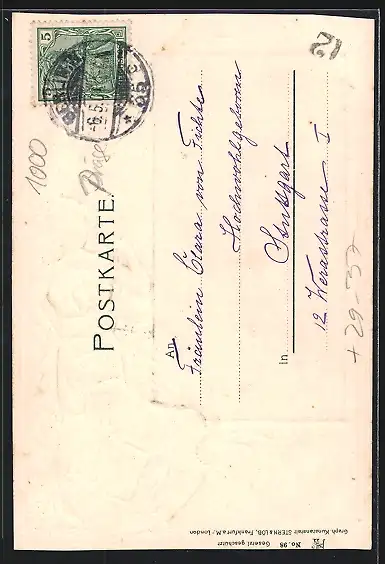 POSTKARTE.
An Fräulein Clara von Fichte
Hochwohlgeboren
in Stuttgart
12 Werastrasse I
5
1000
+ 29-37
No. 98 Gesetzl geschützt
Graph. Kunstanstalt STERN & LÖB, Frankfurt a/M. / London